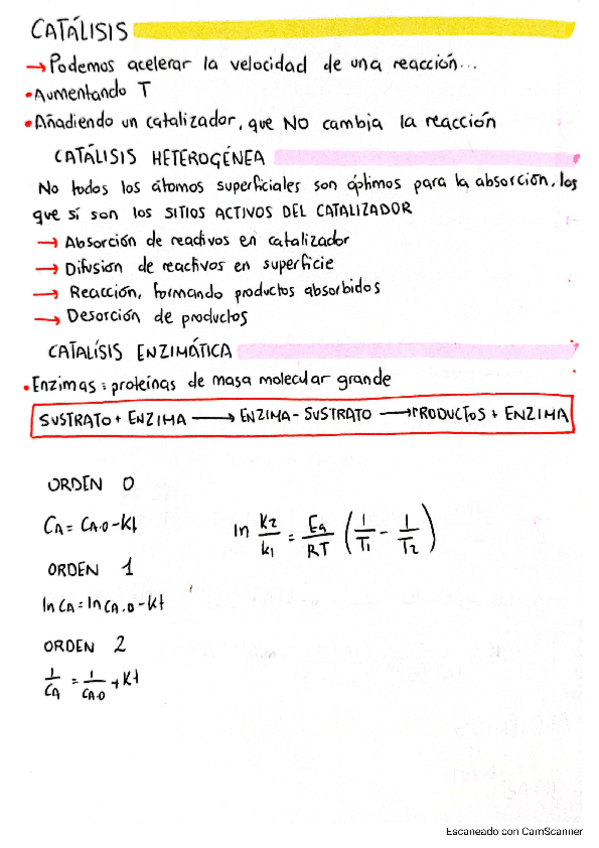 CATÁLISIS
→ Podemos acelerar la velocidad de una reacción...
• Aumentando T
• Añadiendo un catalizador, que NO cambia la reacción
CATÁLISIS HETEROGÉNEA
No todos los átomos superficiales son óptimos para la absorción, los
que sí son los SITIOS ACTIVOS DEL CATALIZADOR
→ Absorción de reactivos en catalizador
→ Difusión de reactivos en superficie
→ Reacción, formando productos absorbidos
→ Desorción de productos
CATALÍSIS ENZIMÁTICA
• Enzimas: proteínas de masa molecular grande
SUSTRATO + ENZIMA → ENZIMA - SUSTRATO → PRODUCTOS + ENZIMA
ORDEN 0
CA = CA.0 - Kt
ln K2/K1 = Ea/RT (1/T1 - 1/T2)
ORDEN 1
ln CA = ln CA.0 - Kt
ORDEN 2
1/CA = 1/CA.0 + Kt
Escaneado con CamScanner